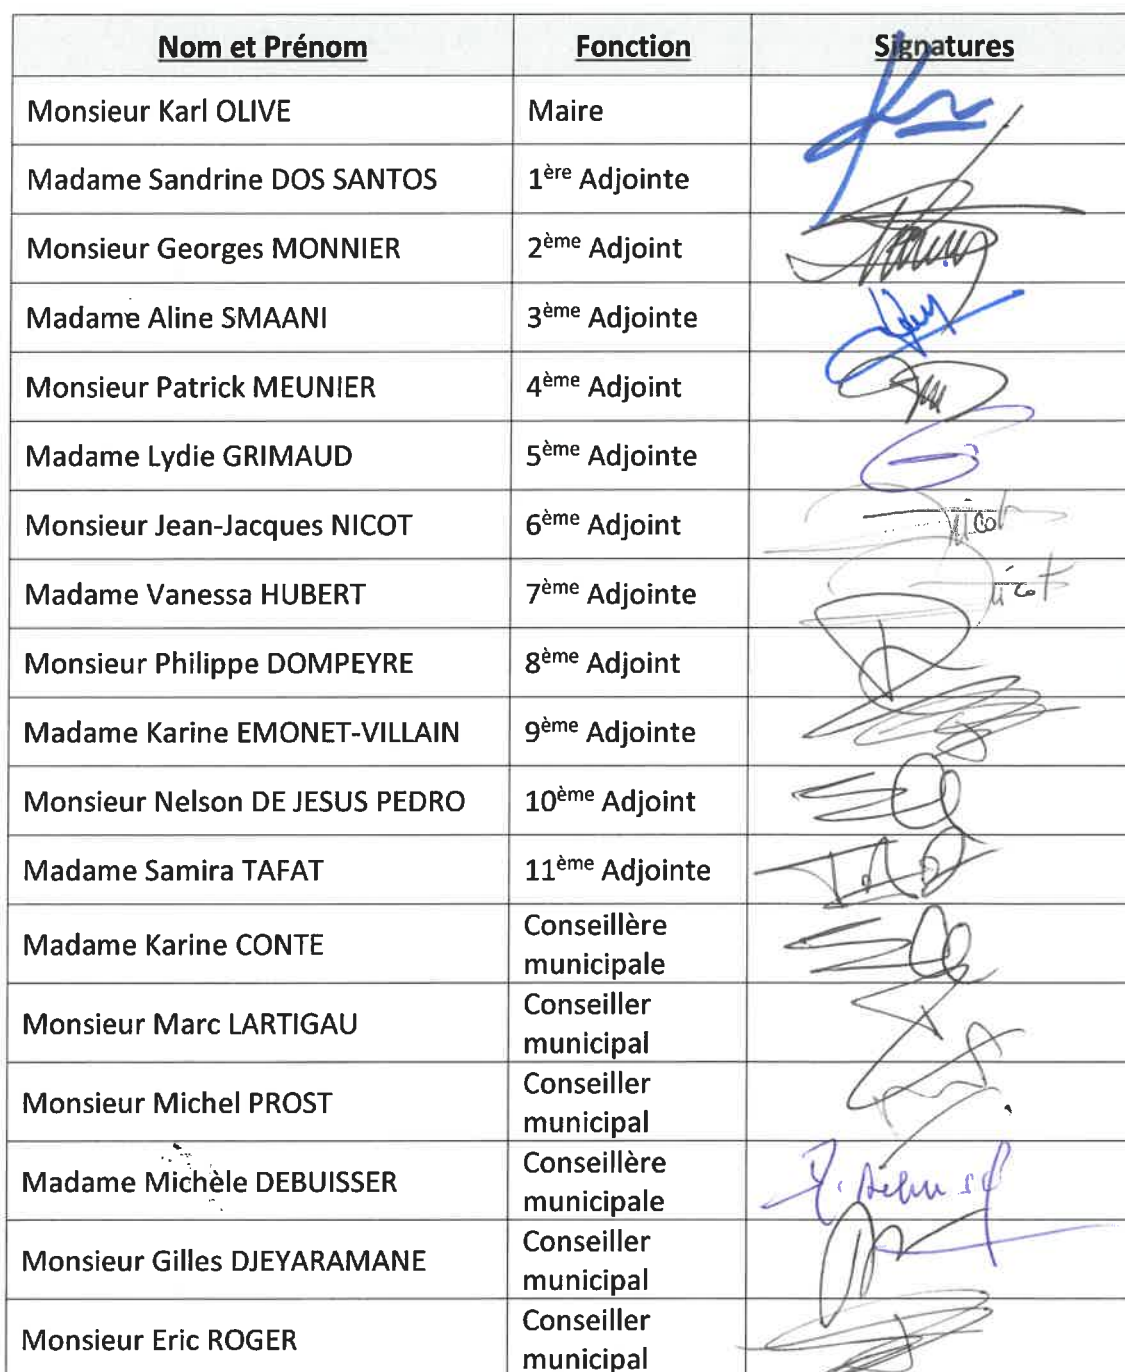 Nom et Prénom Fonction Signatures
Monsieur Karl OLIVE Maire
Madame Sandrine DOS SANTOS 1ère Adjointe
Monsieur Georges MONNIER 2ème Adjoint
Madame Aline SMAANI 3ème Adjointe
Monsieur Patrick MEUNIER 4ème Adjoint
Madame Lydie GRIMAUD 5ème Adjointe
Monsieur Jean-Jacques NICOT 6ème Adjoint
Madame Vanessa HUBERT 7ème Adjointe
Monsieur Philippe DOMPEYRE 8ème Adjoint
Madame Karine EMONET-VILLAIN 9ème Adjointe
Monsieur Nelson DE JESUS PEDRO 10ème Adjoint
Madame Samira TAFAT 11ème Adjointe
Madame Karine CONTE Conseillère
municipale
Monsieur Marc LARTIGAU Conseiller
municipal
Monsieur Michel PROST Conseiller
municipal
Madame Michèle DEBUISSER Conseillère
municipale
Monsieur Gilles DJEYARAMANE Conseiller
municipal
Monsieur Eric ROGER Conseiller
municipal